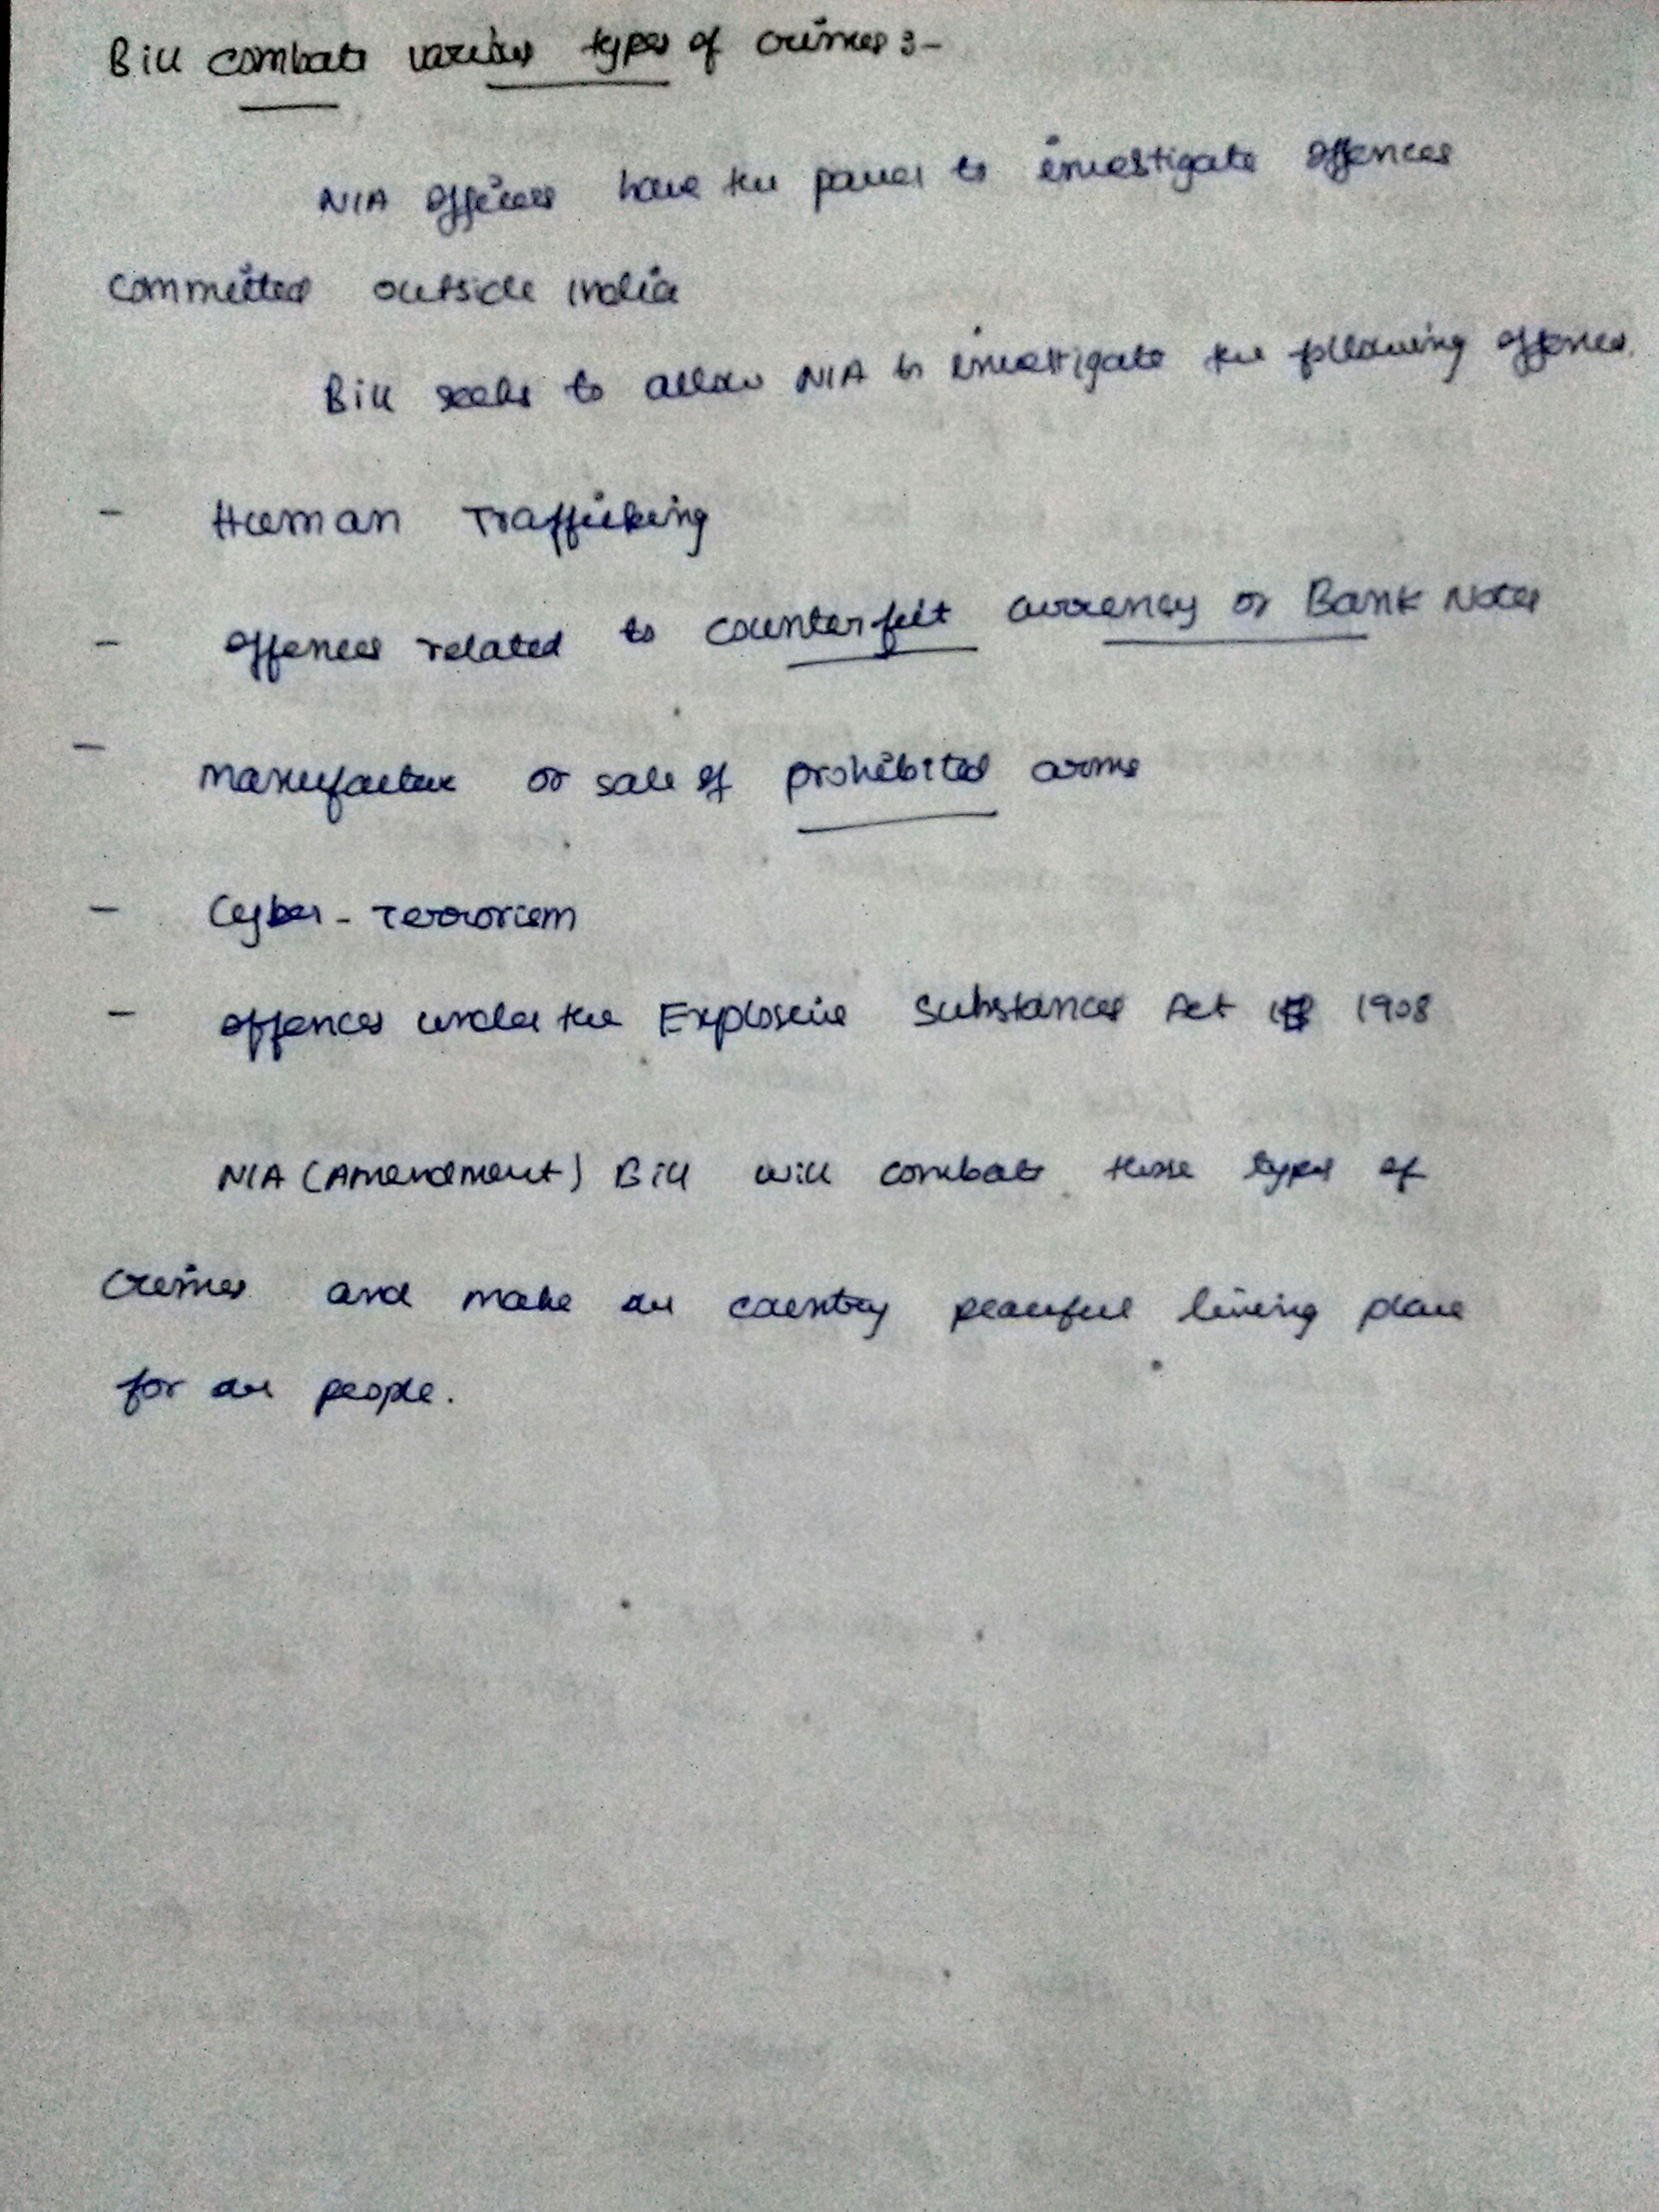 Bill combats various types of crimes :-
NIA officers have the power to investigate offences
committed outside India
Bill seeks to allow NIA to investigate the following offences.
- Human Trafficking
- offences related to counterfeit currency or Bank Notes
- manufacture or sale of prohibited arms
- Cyber-Terrorism
- offences under the Explosive Substances Act 1908
NIA (Amendment) Bill will combats these types of
crimes and make our country peaceful living place
for our people.